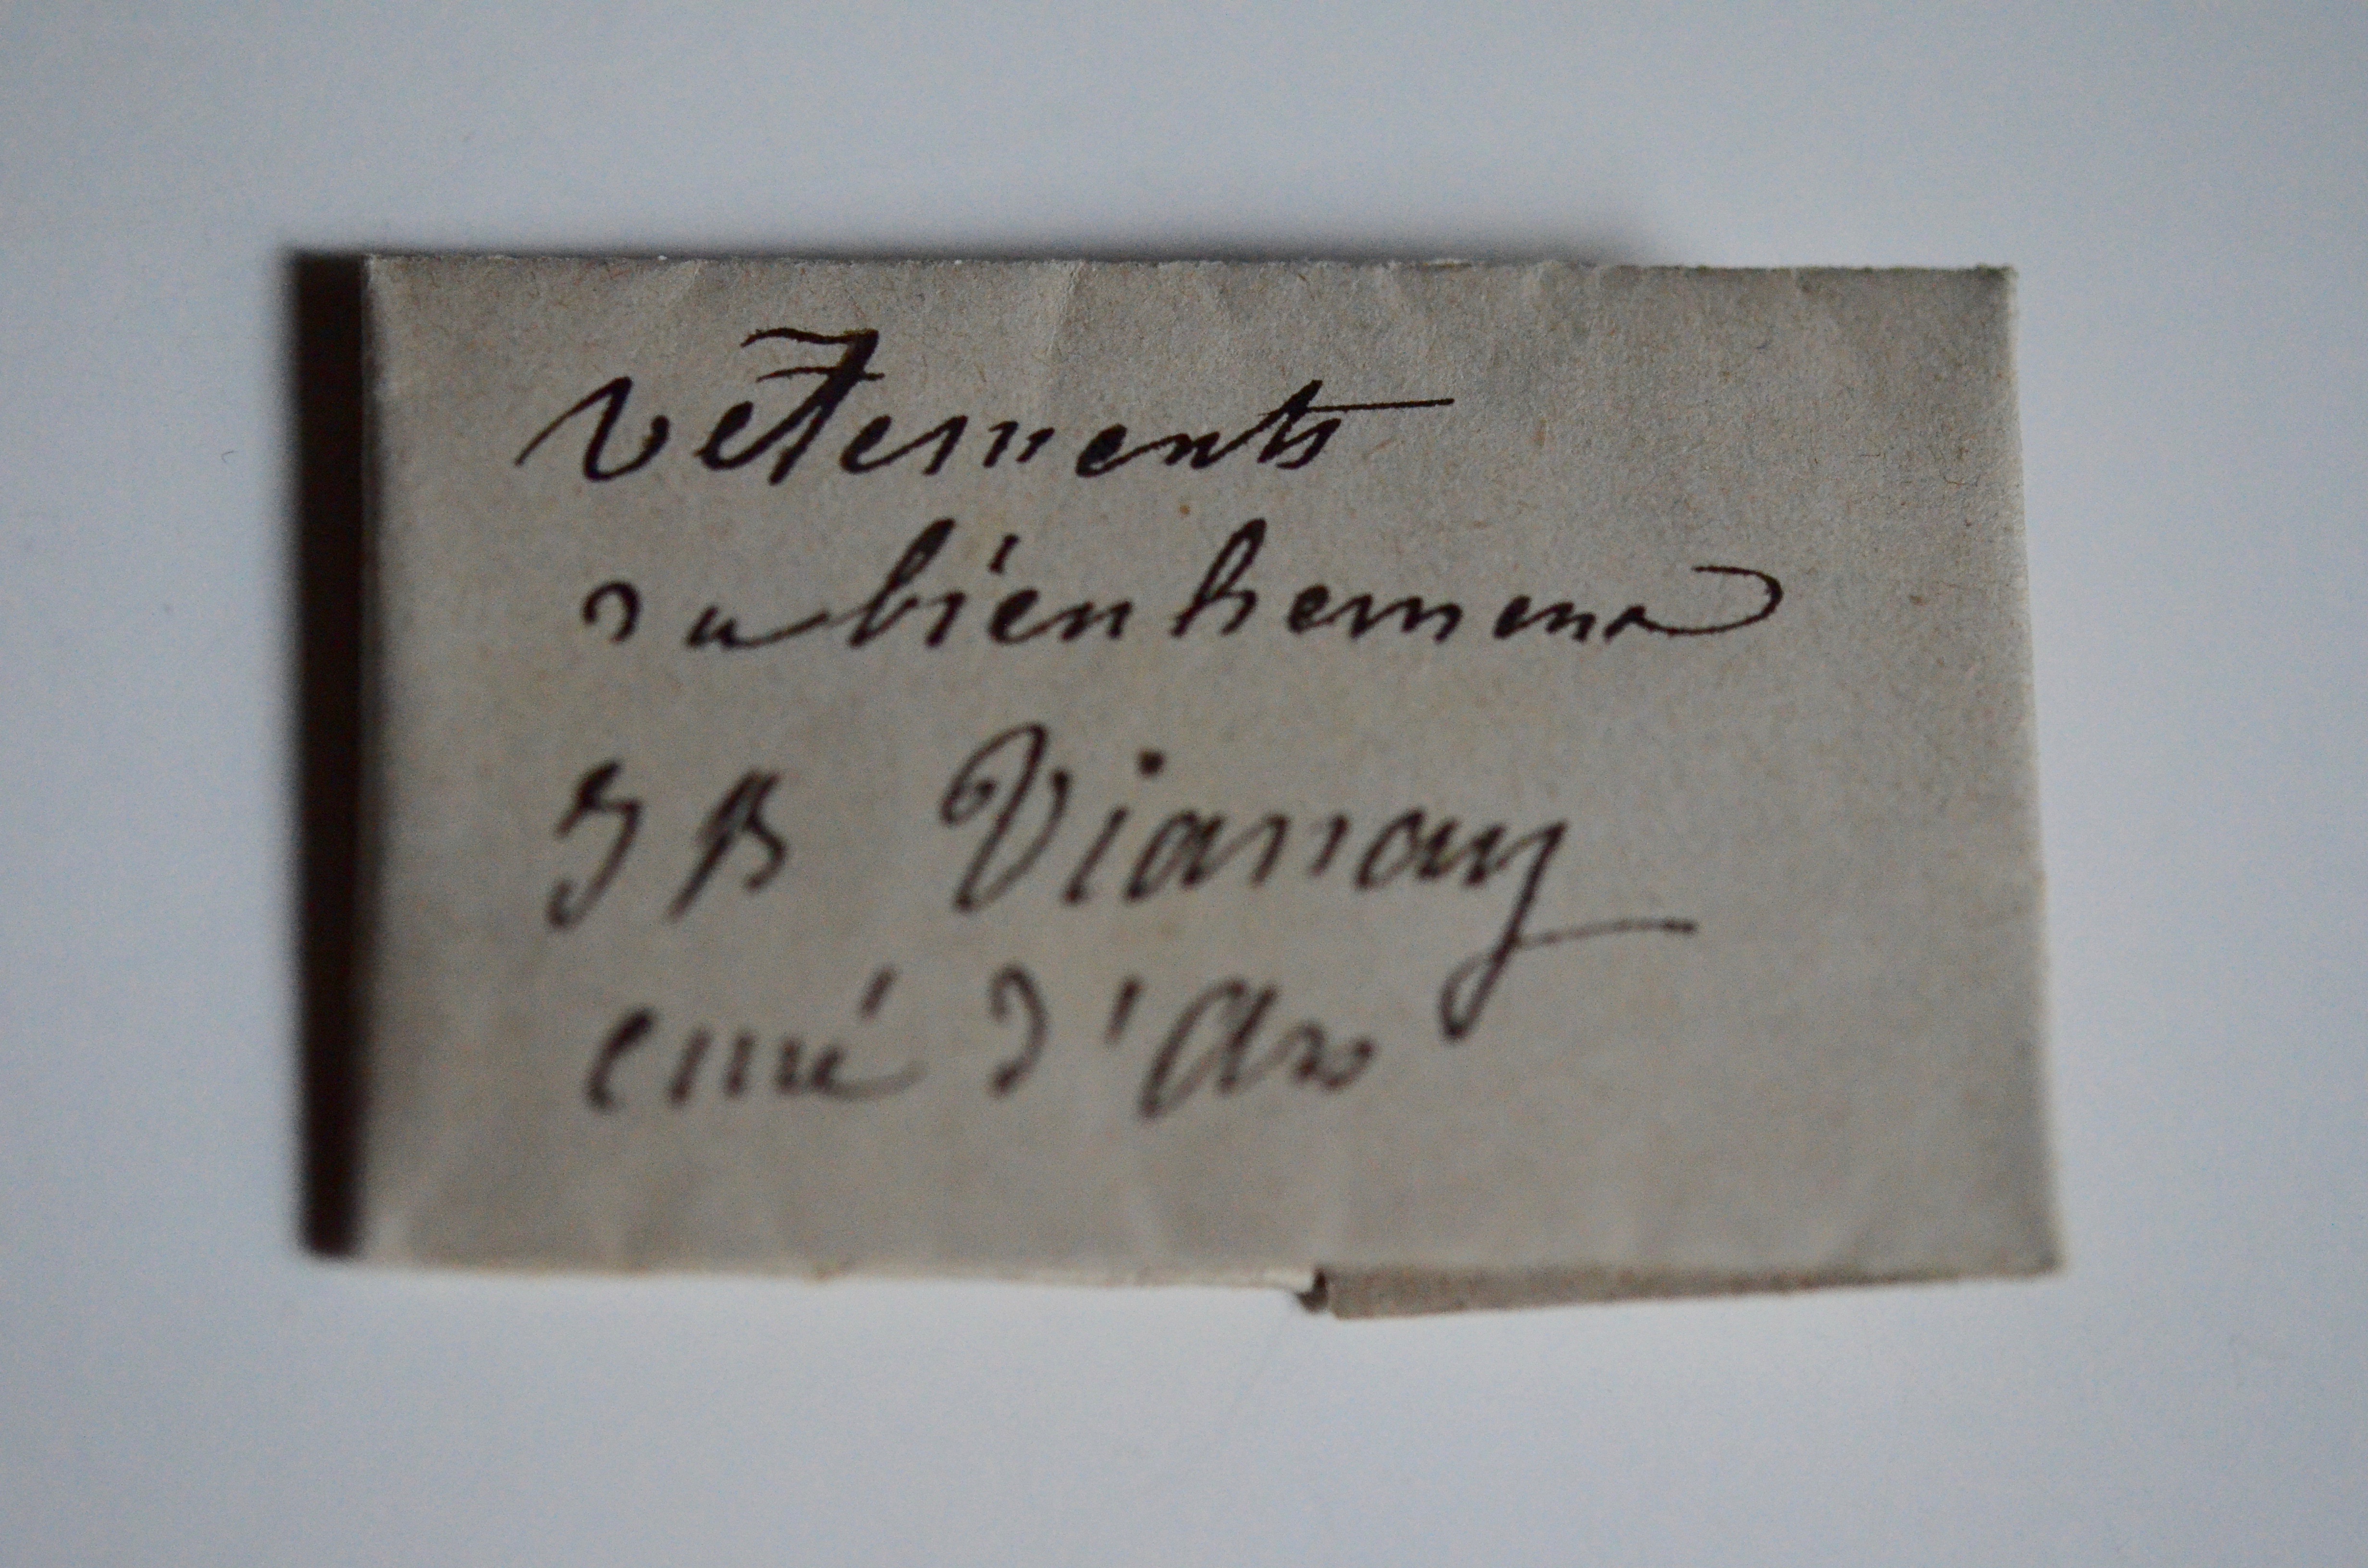 vêtements
du bienheureux
J B Vianay
curé d'Ars